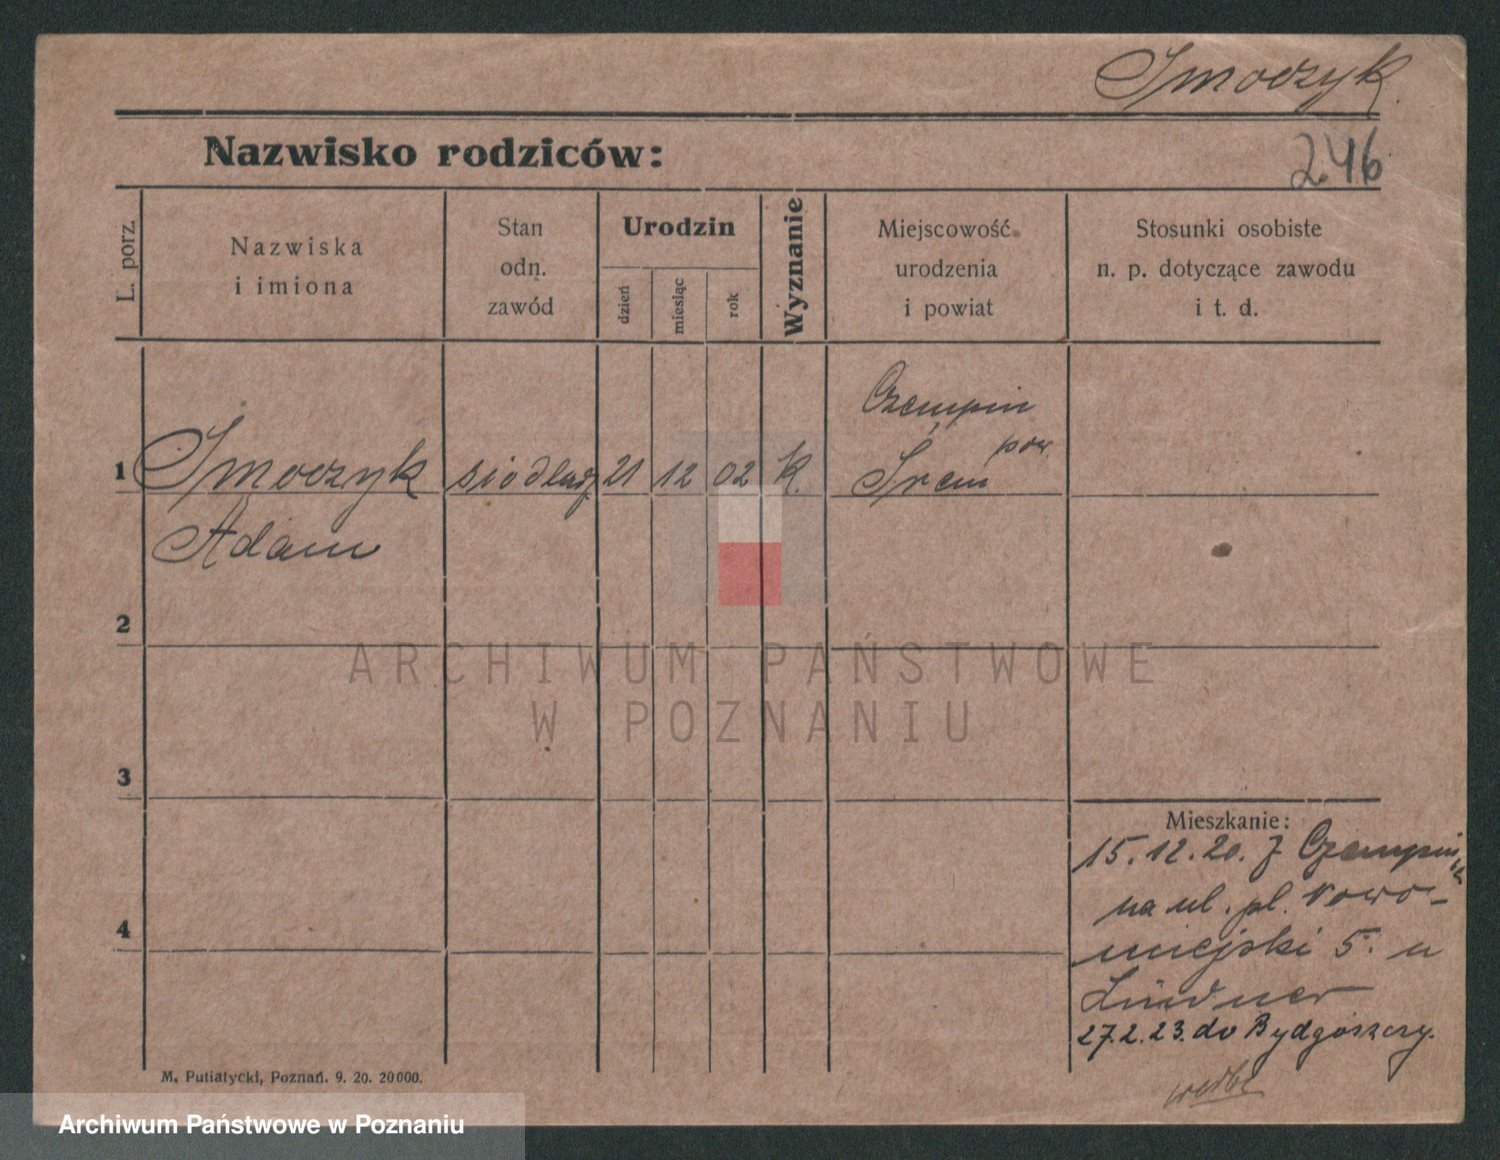 Smoczyk
246
Nazwisko rodziców:
L. porz.
Nazwiska
i imiona
Stan
odn.
zawód
Urodzin
dzień
miesiąc
rok
Wyznanie
Miejscowość
urodzenia
i powiat
Stosunki osobiste
n. p. dotyczące zawodu
i t. d.
Czempin
pow.
1 Smoczyk siodlarz 21 12 02 K. Śrem
Adam
2
3
4
Mieszkanie:
15.12.20. z Czempin
na ul. pl. Nowo-
miejski 5. u
Lindner
27.2.23. do Bydgoszczy.
M. Putiatycki, Poznań. 9. 20. 20000.
ARCHIWUM PAŃSTWOWE
W POZNANIU
Archiwum Państwowe w Poznaniu